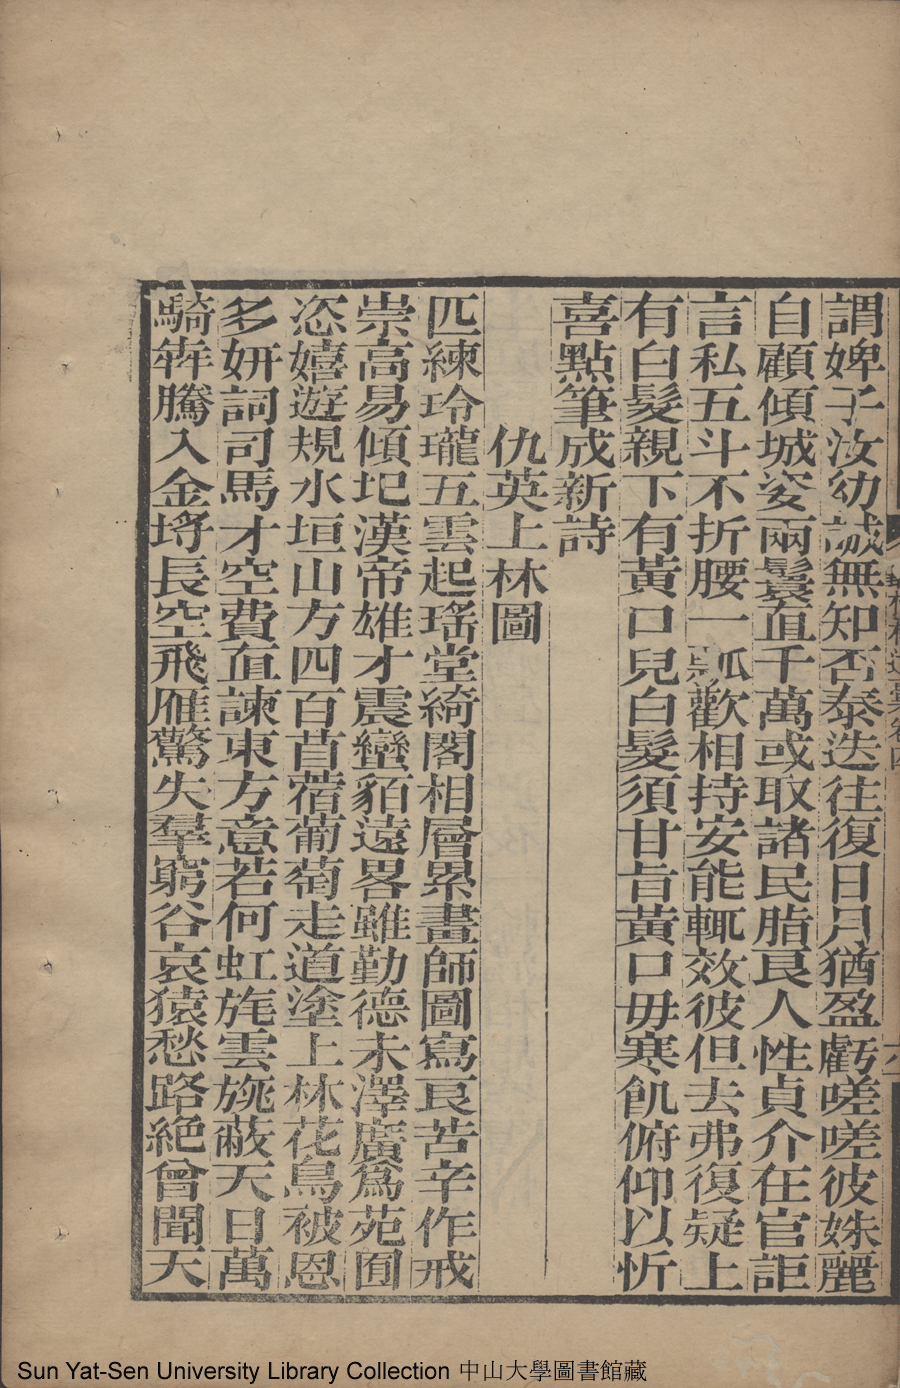 謂婢子汝幼誠無知否泰迭往復日月猶盈虧嗟嗟彼姝麗
自顧傾城姿兩鬟直千萬或取諸民脂艮人性貞介在官詎
言私五斗不折腰一瓢歡相持安能輒效彼但去弗復疑上
有白髮親下有黃口兒白髮須甘旨黃口毋寒飢俯仰以忻
喜點筆成新詩
仇英上林圖
匹練玲瓏五雲起瑤堂綺閣相層累畫師圖寫艮苦辛作戒
崇高易傾圯漢帝雄才震蠻貊遠畧雖勤德未澤廣爲苑囿
恣嬉遊規水垣山方四百苜蓿葡萄走道塗上林花鳥被恩
多妍詞司馬才空費直諫東方意若何虹旄雲旐蔽天日萬
騎犇騰入金埒長空飛雁驚失羣窮谷哀猿愁路絕曾聞天
Sun Yat-Sen University Library Collection 中山大學圖書館藏